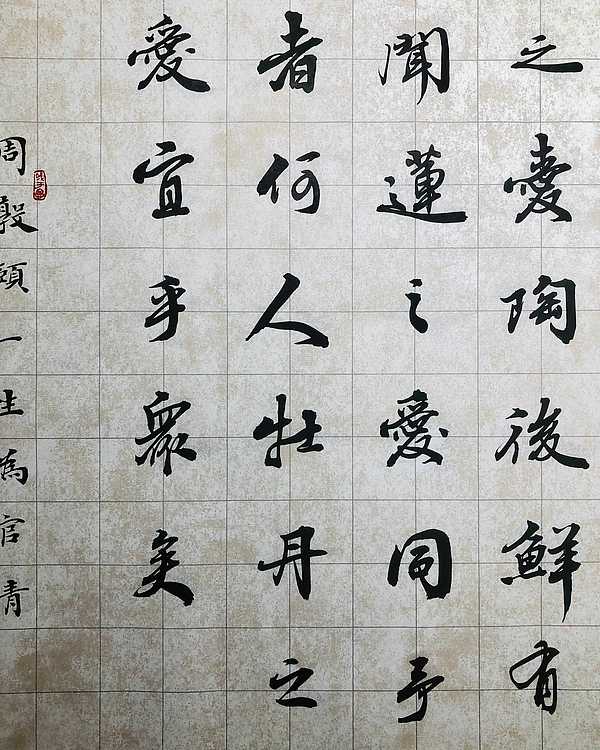 之愛陶後鮮有
聞蓮之愛同予
者何人牡丹之
愛宜乎眾矣
周敦頤一生為官清